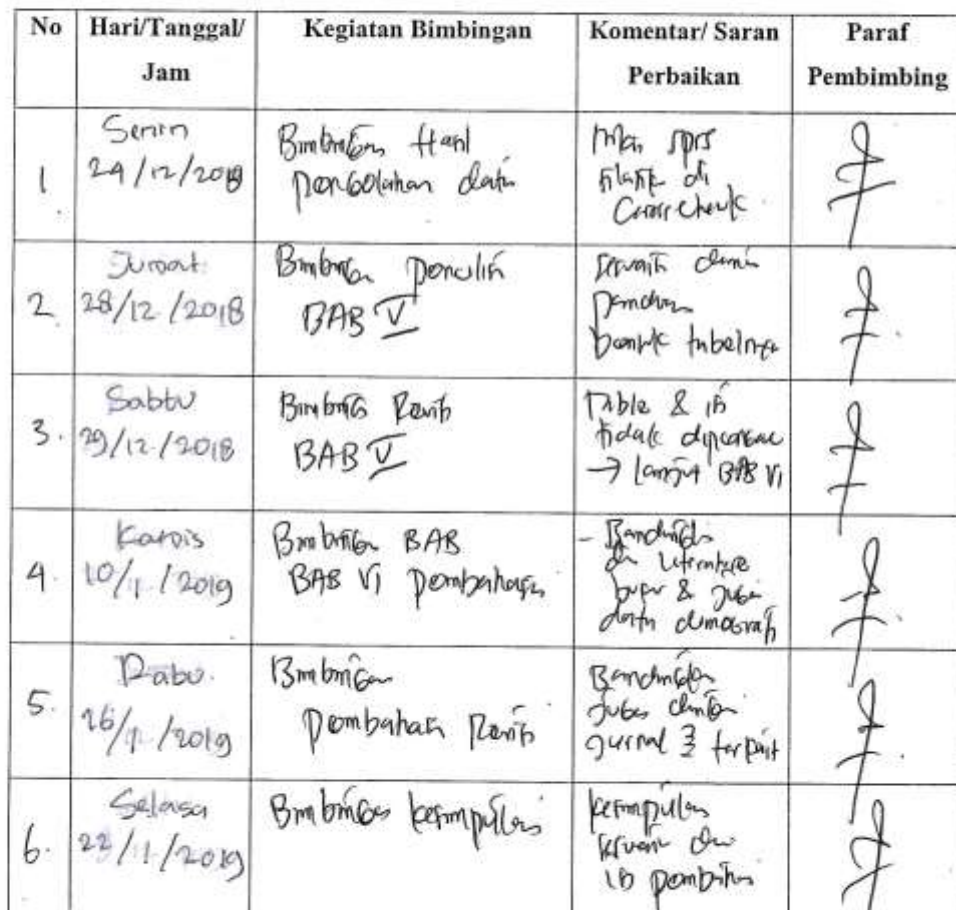 No Hari/Tanggal/ Jam Kegiatan Bimbingan Komentar/ Saran Perbaikan Paraf Pembimbing
1. Senin
24/12/2018
Bimbingan Hasil
pengolahan data
spss
di
Cross check
2. Jumat
28/12/2018
Bimbingan penulisan
BAB V
Sesuaikan dengan
panduan
bentuk tabelnya
3. Sabtu
29/12/2018
Bimbingan Revisi
BAB V
Table & isi
tidak
→ lanjut BAB VI
4. Kamis
10/1/2019
Bimbingan BAB
BAB VI pembahasan
- Bandingkan
literature
& juga
data demografi
5. Rabu.
16/1/2019
Bimbingan
pembahasan Revisi
Bandingkan
juga dengan
jurnal terkait
6. Selasa
22/1/2019
Bimbingan kesimpulan
kesimpulan
sesuai